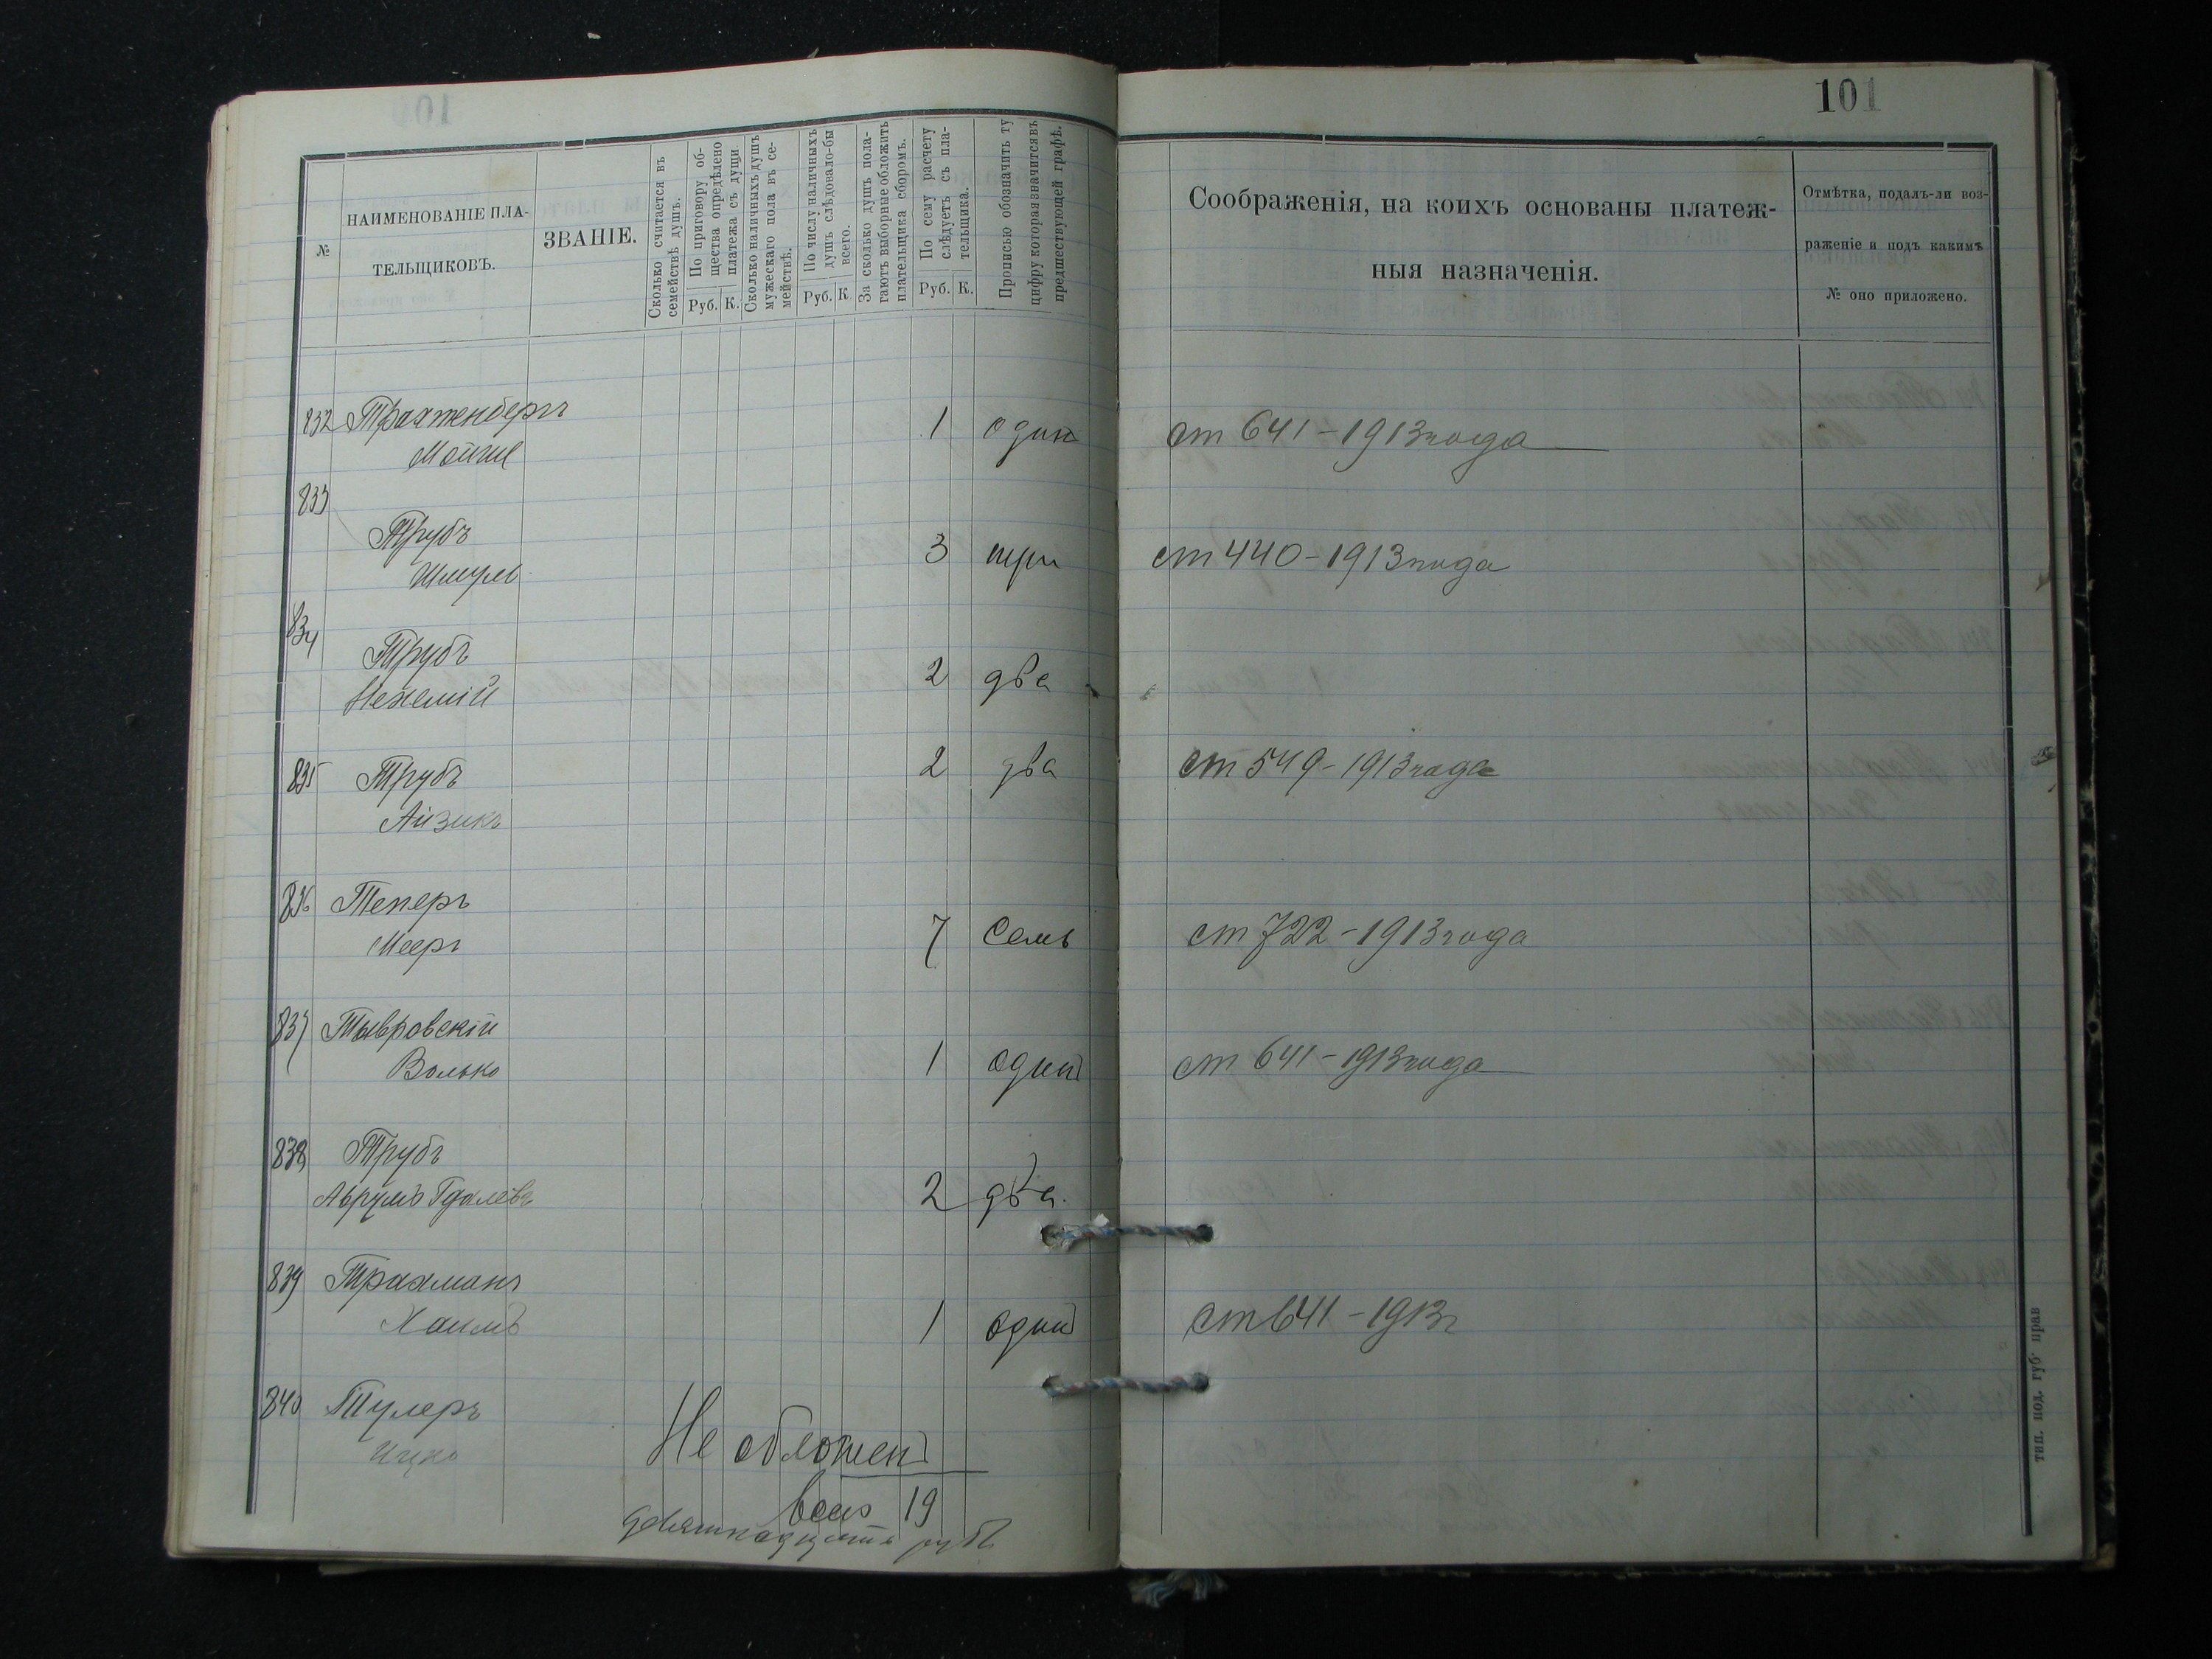 101
№
НАИМЕНОВАНІЕ ПЛА-
ТЕЛЬЩИКОВЪ.
ЗВАНІЕ.
Сколько считается въ
семействѣ душъ.
По приговору об-
щества опредѣлено
платежа съ души
Руб. К.
Сколько наличныхъ душъ
мужескаго пола въ се-
мействѣ.
По числу наличныхъ
душъ слѣдовало-бы
всего.
Руб. К
За сколько душъ пола-
гаютъ выборные обложить
плательщика сборомъ.
По сему расчету
слѣдуетъ съ пла-
тельщика.
Руб. К.
Прописью обозначить ту
цифру которая значится въ
предшествующей графѣ.
Соображенія, на коихъ основаны платеж-
ныя назначенія.
Отмѣтка, подалъ-ли воз-
раженіе и подъ какимъ
№ оно приложено.
832 Трахтенбергъ 1 один ст 641-1913 года
833
Трубъ 3 три ст 440-1913 года
Шмуль
834
Трубъ 2 два
Нехемій
835 Трубъ 2 два ст 549-1913 года
Айзикъ
836 Теперъ
Мееръ 7 семь ст 722-1913 года
837 Тывровскій
Волько 1 один ст 641-1913 года
838 Трубъ
Аврумъ Гдалевъ 2 два.
839 Трахманъ
Хаимъ 1 один ст 641-1913 г
840 Тулеръ
Ицко Не обложен
всего 19
девятнадцать руб
тип. под. губ. прав